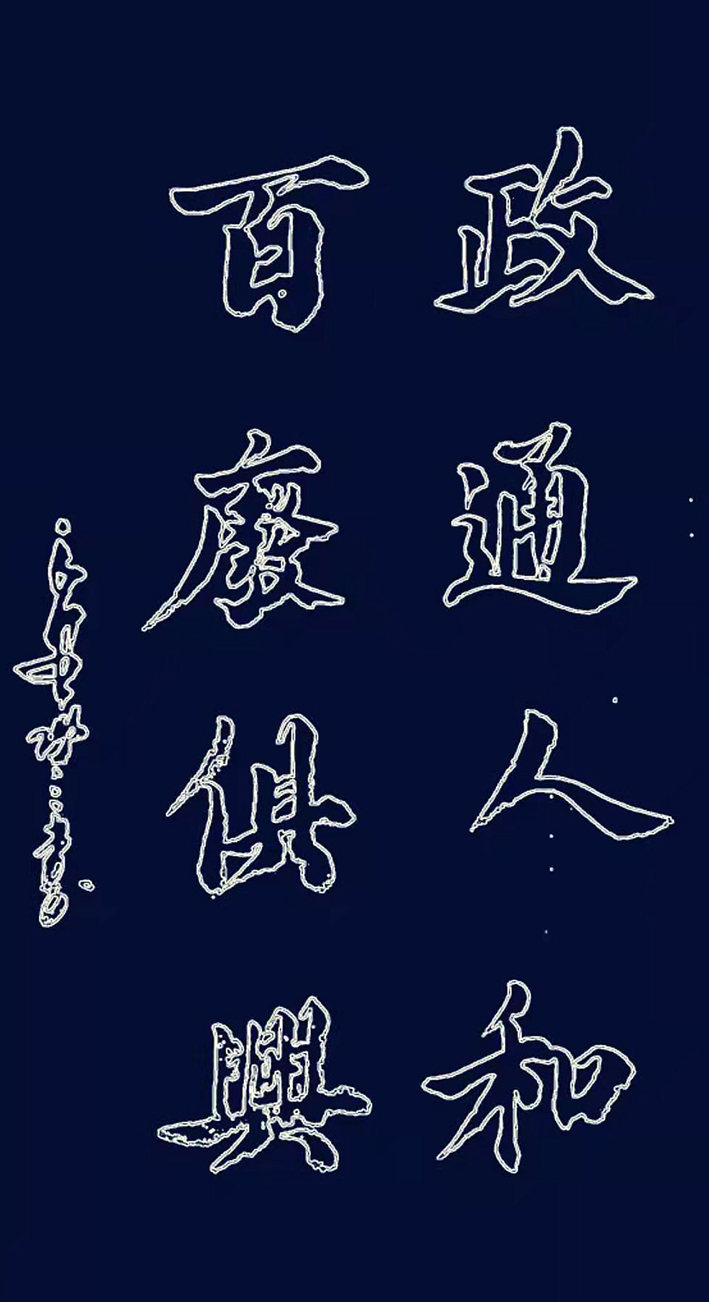 政通人和
百廢俱興